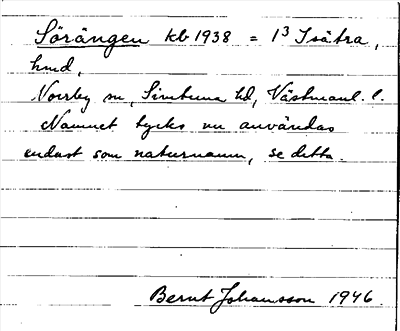 Sörängen kb 1938 = 1³ Isätra,
hmd,
Norrby sn, Simtuna hd, Västmanl. l.
Namnet tycks nu användas
endast som naturnamn, se detta.
Bernt Johansson 1946.